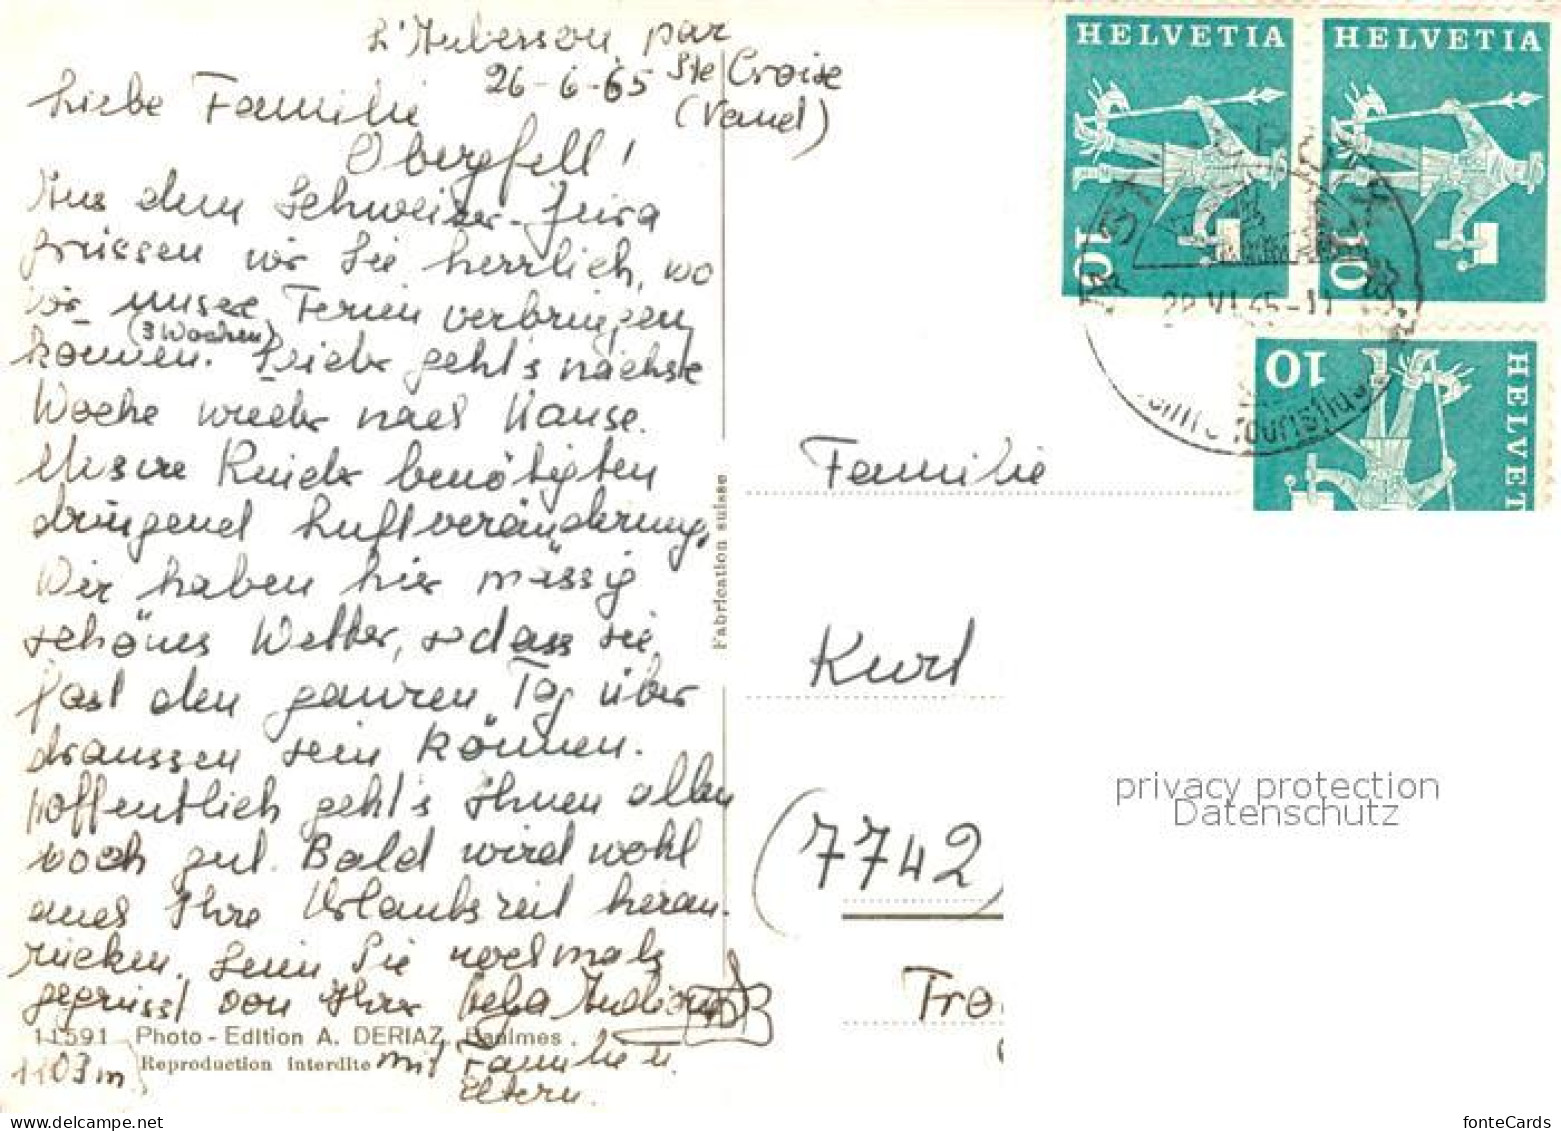 L'Auberson, par
26-6-65 Ste Croix
(Vaud)
Liebe Familie
Obergfell!
Aus dem Schweizer-Jura
grüssen wir Sie herrlich, wo
wir unsere Ferien verbringen
(3 Wochen)
können. Leider geht's nächste
Woche wieder nach Hause.
Unsere Kinder benötigten
dringend Luftveränderung.
Wir haben hier mässig
schönes Wetter, sodass sie
fast den ganzen Tag über
draussen sein können.
Hoffentlich geht's Ihnen allen
noch gut. Bald wird wohl
auch Ihre Urlaubszeit heran-
rücken. Seien Sie nochmals
gegrüsst von Ihrer
mit Familie u.
Eltern.
11591 Photo-Edition A. DERIAZ, Baulmes.
Reproduction interdite
1103m
Fabrication suisse
HELVETIA
10
HELVETIA
10
HELVET
10
28.VI.65-11
Familie
Kurt
(7742)
Fro
privacy protection
Datenschutz
www.delcampe.net
fonteCards